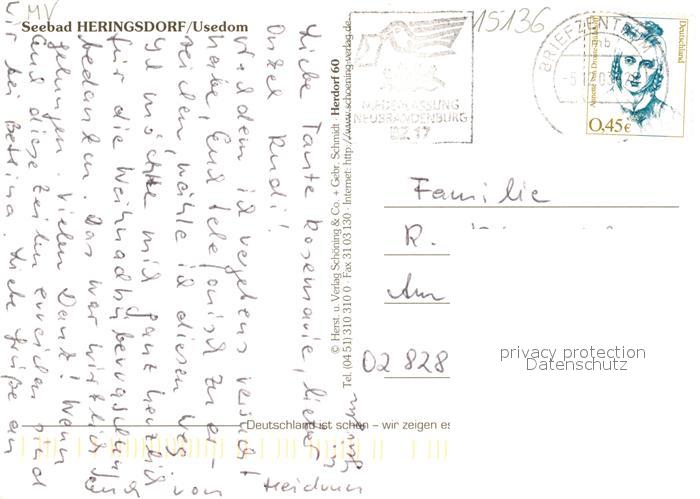 MV
Seebad HERINGSDORF/Usedom
15136
BRIEFZENTRUM
NIEDERLASSUNG
NEUBRANDENBURG
BZ 17
Deutschland
0,45€
Familie
R.
Am
02 828
privacy protection
Datenschutz
© Herst. u. Verlag Schöning & Co. + Gebr. Schmidt · Herdorf 60
Tel. (04 51) 310 310 0 · Fax 31 03 130 · Internet: http://www.schoening-verlag.de
Deutschland ist schön – wir zeigen es
Liebe Tante Rosemarie, lieber
Onkel Rudi!
Nachdem ich vergebens versucht
habe, Euch telefonisch zu er-
reichen, wähle ich diesen Weg.
Ich möchte mich ganz herzlich
für die Weihnachtsüberraschung
bedanken. Das war wirklich
gelungen. Vielen Dank! Wenn
Euch diese Zeilen erreichen sind
wir bei Bettina. Liebe Grüße an
von
Heidrun